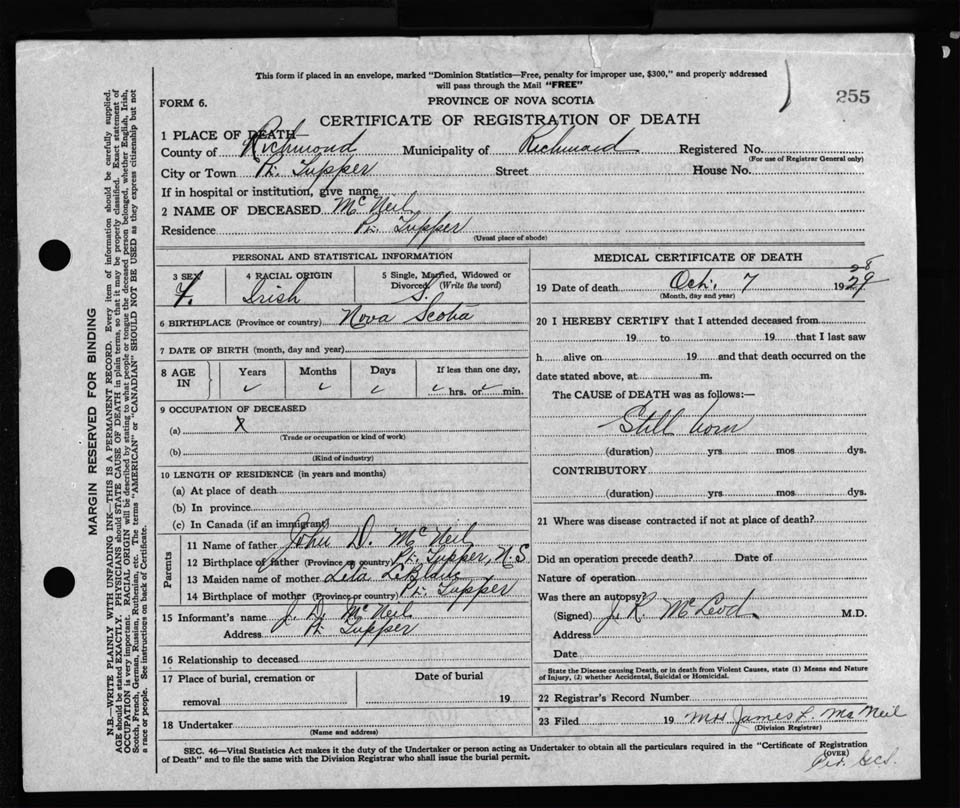 This form if placed in an envelope, marked "Dominion Statistics—Free, penalty for improper use, $300," and properly addressed
will pass through the Mail "FREE"
255
FORM 6.
PROVINCE OF NOVA SCOTIA
CERTIFICATE OF REGISTRATION OF DEATH
1 PLACE OF DEATH—
County of Richmond Municipality of Richmond Registered No.
(For use of Registrar General only)
City or Town Pt. Tupper Street House No.
If in hospital or institution, give name
2 NAME OF DECEASED McNeil
Residence Pt. Tupper
(Usual place of abode)
PERSONAL AND STATISTICAL INFORMATION
3 SEX 4 RACIAL ORIGIN 5 Single, Married, Widowed or Divorced. (Write the word)
F. Irish S.
6 BIRTHPLACE (Province or country) Nova Scotia
7 DATE OF BIRTH (month, day and year)
8 AGE IN Years Months Days If less than one day,
hrs. or min.
9 OCCUPATION OF DECEASED
(a) X
(Trade or occupation or kind of work)
(b)
(Kind of industry)
10 LENGTH OF RESIDENCE (in years and months)
(a) At place of death
(b) In province
(c) In Canada (if an immigrant)
Parents
11 Name of father John D. McNeil
12 Birthplace of father (Province or country) Pt. Tupper, N.S
13 Maiden name of mother Leta LeBlanc
14 Birthplace of mother (Province or country) Pt. Tupper
15 Informant's name J. D. McNeil
Address Pt Tupper
16 Relationship to deceased
17 Place of burial, cremation or Date of burial
removal 19
18 Undertaker
(Name and address)
MEDICAL CERTIFICATE OF DEATH
19 Date of death Oct. 7 1929 28
(Month, day and year)
20 I HEREBY CERTIFY that I attended deceased from
19 to 19 that I last saw
h alive on 19 and that death occurred on the
date stated above, at m.
The CAUSE of DEATH was as follows:—
Still born
(duration) yrs mos dys.
CONTRIBUTORY
(duration) yrs mos dys.
21 Where was disease contracted if not at place of death?
Did an operation precede death? Date of
Nature of operation
Was there an autopsy?
(Signed) J. R. McLeod M.D.
Address
Date
State the Disease causing Death, or in death from Violent Causes, state (1) Means and Nature
of Injury, (2) whether Accidental, Suicidal or Homicidal.
22 Registrar's Record Number
23 Filed 19 James L. McNeil
(Division Registrar)
SEC. 46—Vital Statistics Act makes it the duty of the Undertaker or person acting as Undertaker to obtain all the particulars required in the "Certificate of Registration
of Death" and to file the same with the Division Registrar who shall issue the burial permit.
(OVER)
MARGIN RESERVED FOR BINDING
N.B.—WRITE PLAINLY WITH UNFADING INK—THIS IS A PERMANENT RECORD. Every item of information should be carefully supplied.
AGE should be stated EXACTLY. PHYSICIANS should STATE CAUSE OF DEATH in plain terms, so that it may be properly classified. Exact statement of
OCCUPATION is very important. RACIAL ORIGIN will be described by stating to what people or tongue the deceased person belonged, whether English, Irish,
Scotch, French, German, Russian, Ruthenian, etc. The terms "AMERICAN" or "CANADIAN" SHOULD NOT BE USED as they express citizenship but not
a race or people. See instructions on back of Certificate.